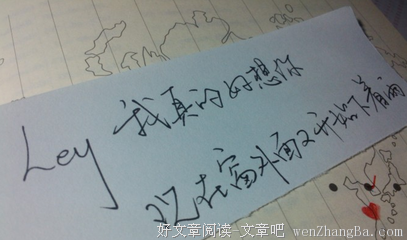 Ley 我真的好想你
现在窗外面又开始下着雨
好文章阅读-文章吧 wenZhangBa.com